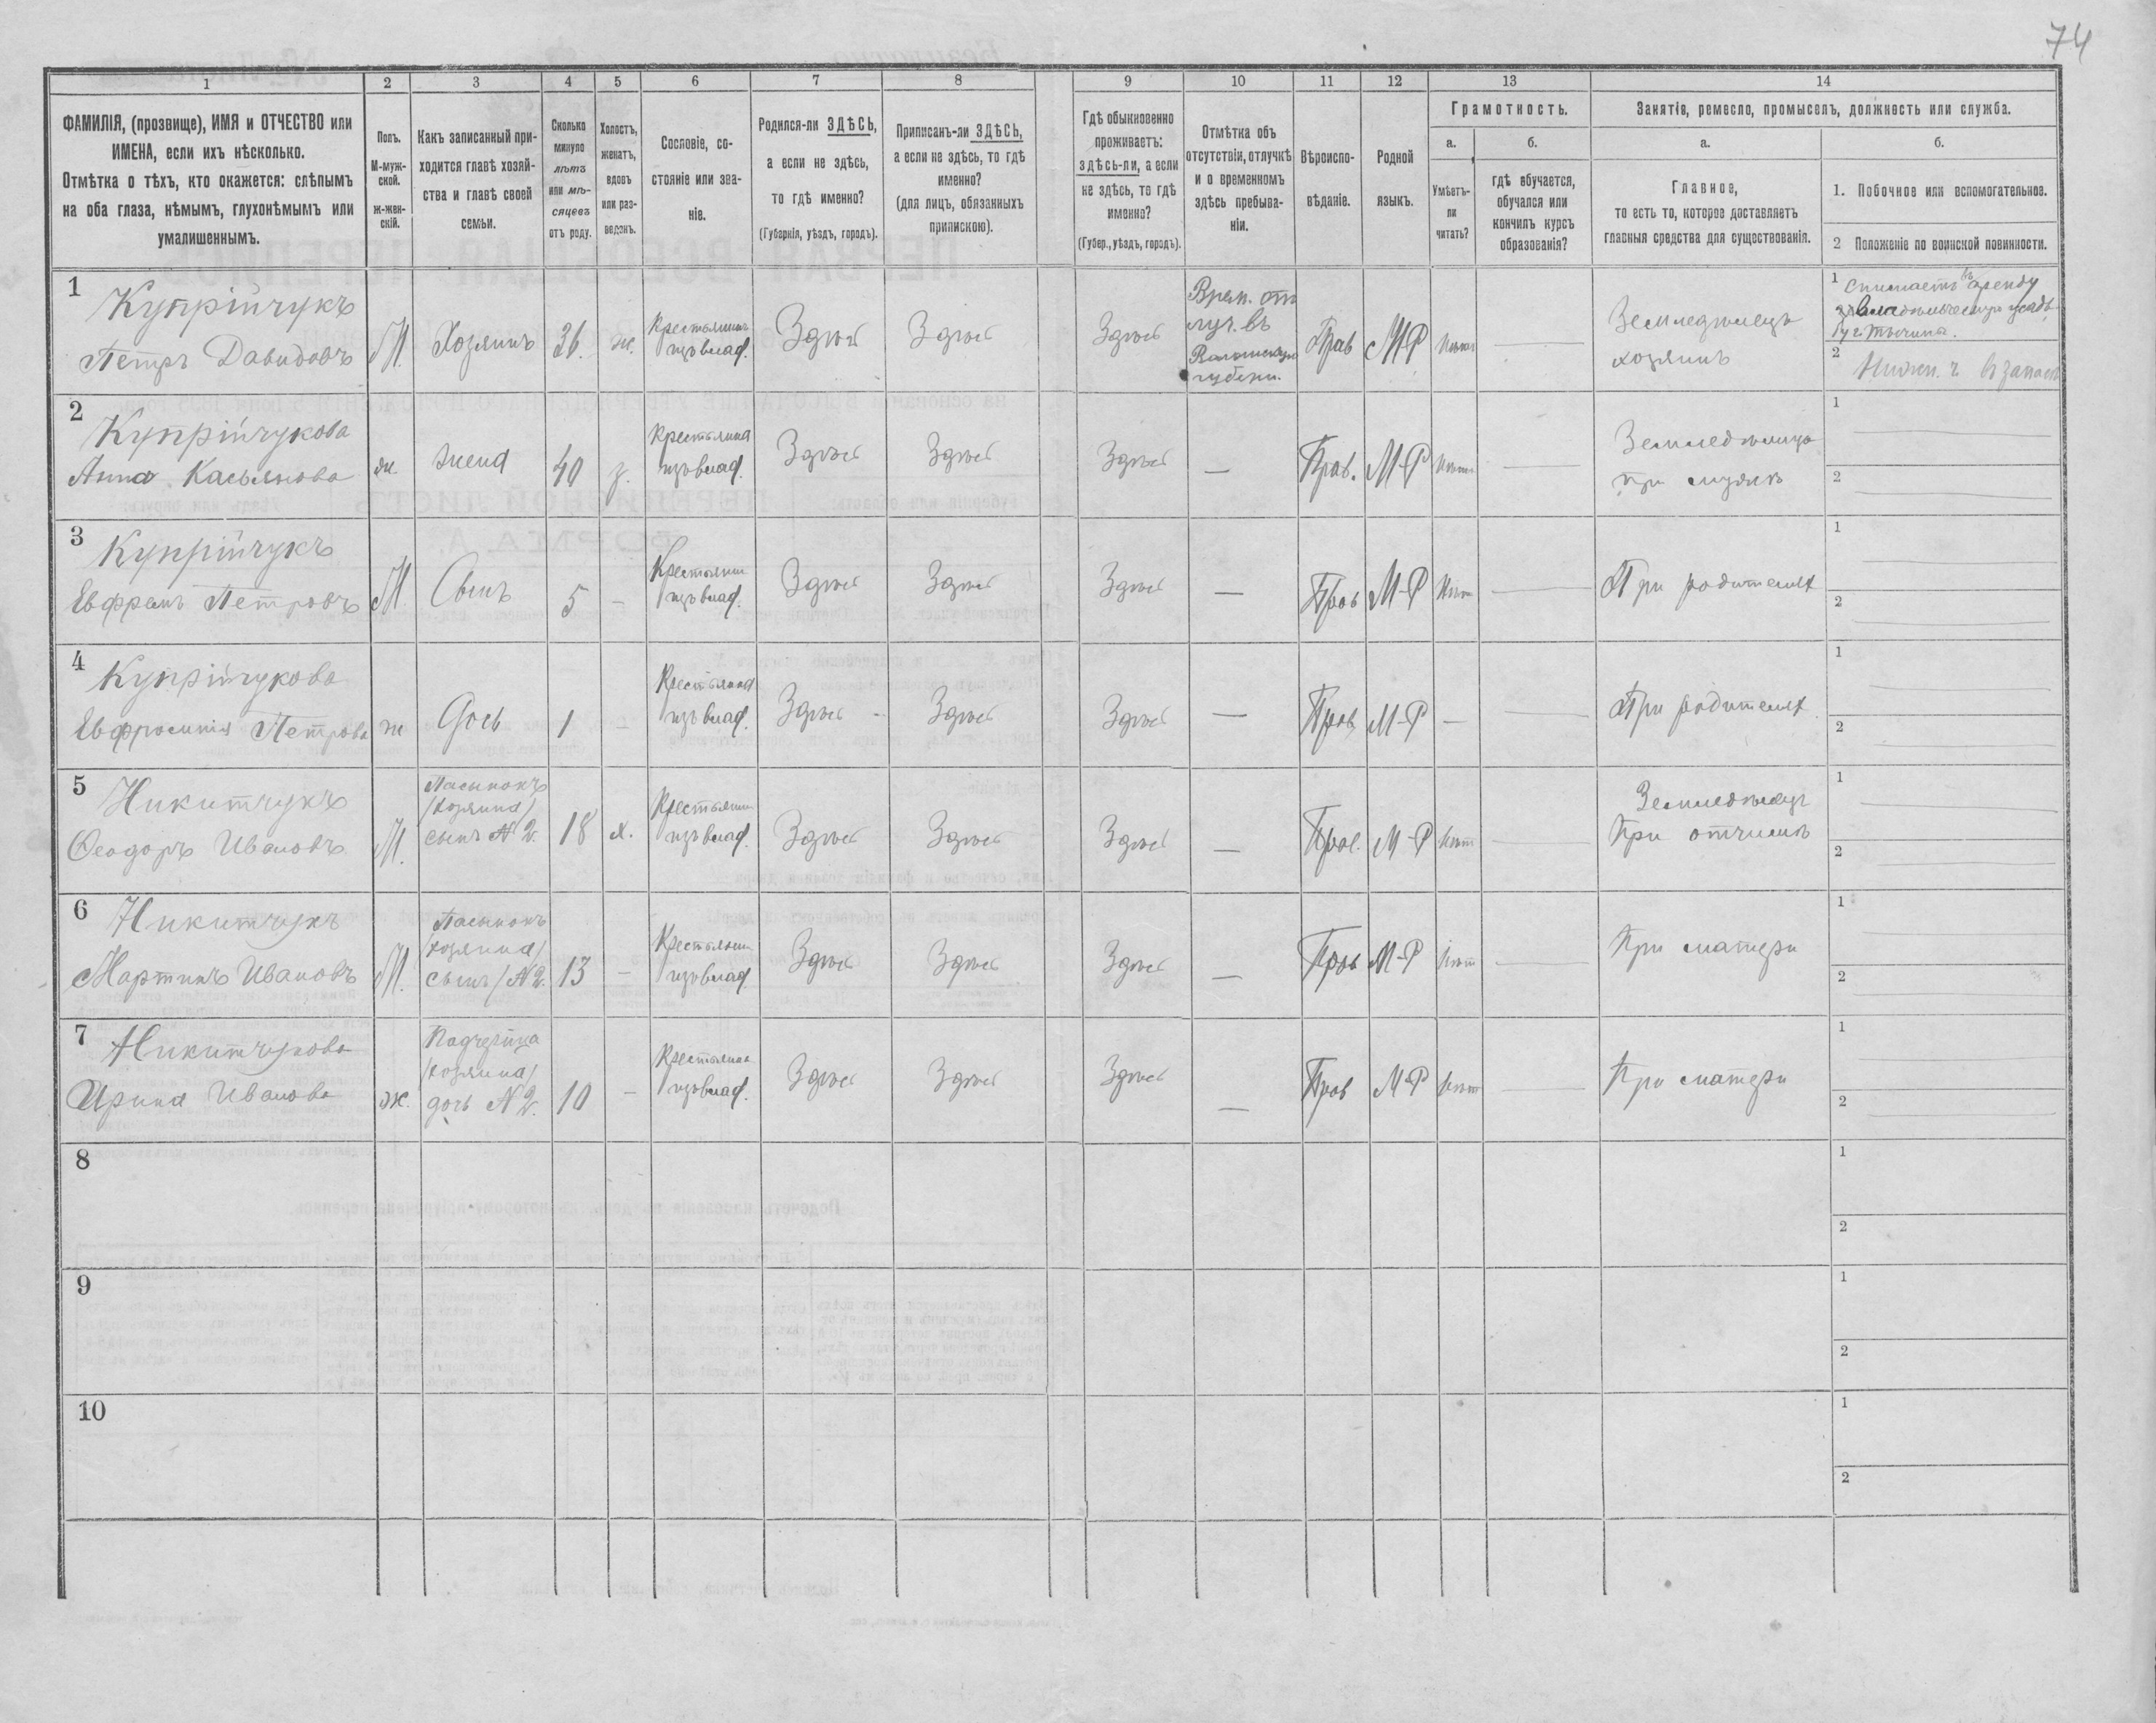 74
1 2 3 4 5 6 7 8 9 10 11 12 13 14
ФАМИЛІЯ, (прозвище), ИМЯ и ОТЧЕСТВО или
ИМЕНА, если ихъ нѣсколько.
Отмѣтка о тѣхъ, кто окажется: слѣпымъ
на оба глаза, нѣмымъ, глухонѣмымъ или
умалишеннымъ.
Полъ.
М-муж-
ской.
ж-жен-
скій.
Какъ записанный при-
ходится главѣ хозяй-
ства и главѣ своей
семьи.
Сколько
минуло
лѣтъ
или мѣ-
сяцевъ
отъ роду.
Холостъ,
женатъ,
вдовъ
или раз-
веденъ.
Сословіе, со-
стояніе или зва-
ніе.
Родился-ли ЗДѢСЬ,
а если не здѣсь,
то гдѣ именно?
(Губернія, уѣздъ, городъ).
Приписанъ-ли ЗДѢСЬ,
а если не здѣсь, то гдѣ
именно?
(для лицъ, обязанныхъ
припискою).
Гдѣ обыкновенно
проживаетъ:
здѣсь-ли, а если
не здѣсь, то гдѣ
именно?
(Губер., уѣздъ, городъ).
Отмѣтка объ
отсутствіи, отлучкѣ
и о временномъ
здѣсь пребыва-
ніи.
Вѣроиспо-
вѣданіе.
Родной
языкъ.
Грамотность.
а.
Умѣетъ-
ли
читать?
б.
гдѣ обучается,
обучался или
кончилъ курсъ
образованія?
Занятія, ремесло, промыселъ, должность или служба.
а.
Главное,
то есть то, которое доставляетъ
главныя средства для существованія.
б.
1. Побочное или вспомогательное.
2 Положеніе по воинской повинности.
1 Купрійчукъ
Петръ Давидовъ
М.
Хозяинъ
36.
ж.
Крестьянинъ
изъ влад.
Здѣсь
Здѣсь
Здѣсь
Врем. от
луч. въ
губерн.
Прав
М-Р
Нѣтъ
Земледѣлецъ
хозяинъ
1 Снимаетъ въ аренду
2 Нижн. ч. въ запасѣ
2 Купрійчукова
Анна Касьянова
ж.
жена
40
з.
Крестьянка
изъ влад.
Здѣсь
Здѣсь
Здѣсь
—
Прав.
М-Р
Нѣтъ
Земледѣлица
при мужѣ
1
2
3 Купрійчукъ
Евфремъ Петровъ
М.
Сынъ
5
—
Крестьянин
изъ влад.
Здѣсь
Здѣсь
Здѣсь
—
Прав
М-Р
Нѣт
При родителях
1
2
4 Купрійчукова
Евфросинія Петрова
ж
Дочь
1
—
Крестьянка
изъ влад.
Здѣсь
Здѣсь
Здѣсь
—
Прав
М-Р
—
При родителях
1
2
5 Никитчукъ
Ѳеодоръ Ивановъ
М.
Пасынокъ
/хозяина/
сынъ №2.
18
х.
Крестьянин
изъ влад.
Здѣсь
Здѣсь
Здѣсь
—
Прав.
М-Р
Нѣт
Земледѣлецъ
При отчимѣ
1
2
6 Никитчукъ
Мартинъ Ивановъ
М.
Пасынокъ
/хозяина/
сынъ/ №2.
13
—
Крестьянин
изъ влад.
Здѣсь
Здѣсь
Здѣсь
—
Прав
М-Р
Нѣт
При матери
1
2
7 Никитчукова
Ирина Иванова
ж.
Падчерица
/хозяина/
дочь №2.
10
—
Крестьянка
изъ влад.
Здѣсь
Здѣсь
Здѣсь
—
Прав
М-Р
Нѣт
При матери
1
2
8
1
2
9
1
2
10
1
2